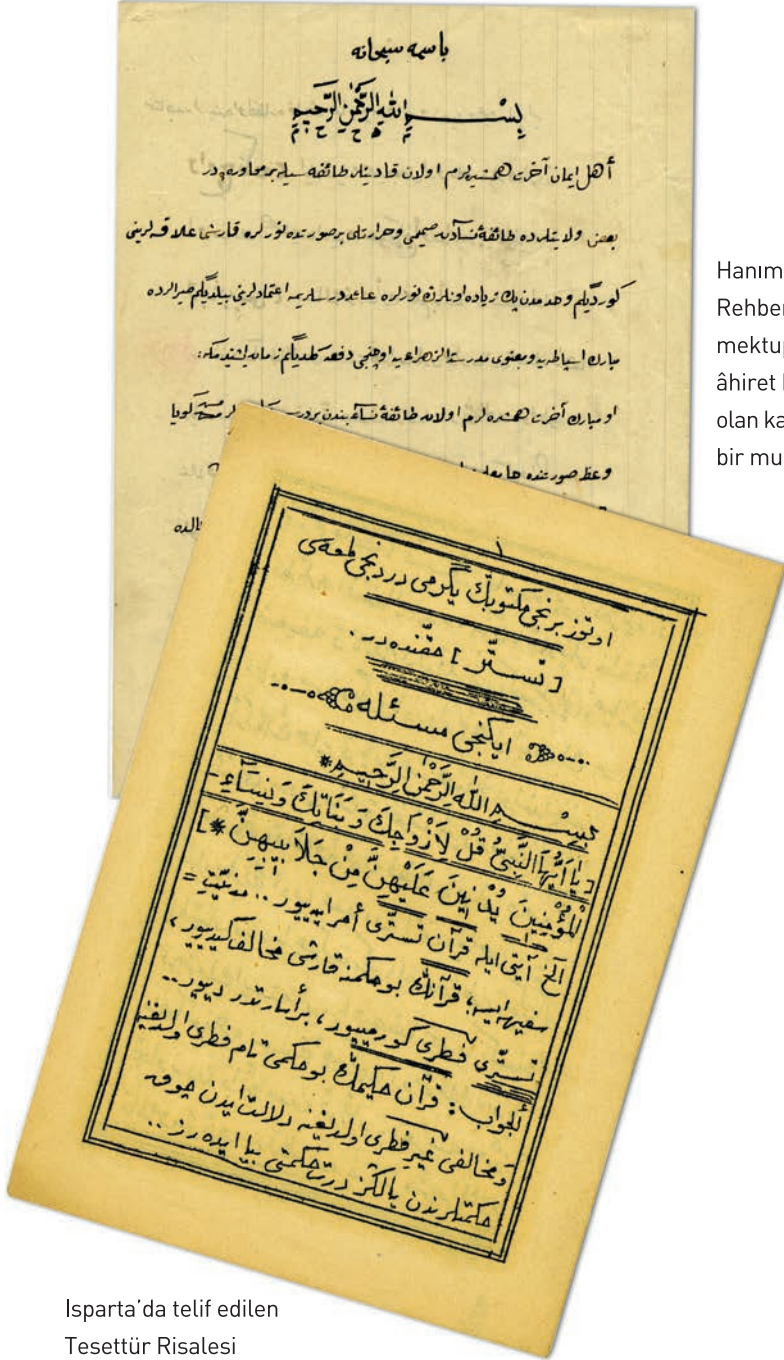 باسمه سبحانه
بِسْــــمِ اللهِ الرَّحْمٰنِ الرَّحِيمِ
أهل ايمان آخرت همشيره لرم اولان قادينلر طائفه سيله بر محاوره در
بعض ولايتلرده طائفۀ نساءدن صميمى و حرارتلى بر صورتده نورلره قارشى علاقه لرينى
كورديگم و حدمدن پك زياده اونلرڭ نورلره عائد درسلريمه اعتمادلرينى بيلديگم صيرالرده
مبارك اسپارطه يه و معنوى مدرسة الزهرايه اوچنجى دفعه كلديگم زمان ايشيتدم كه:
او مبارك آخرت همشيره لرم اولان طائفۀ نساء بندن بر درس
كويا
وعظ صورتنده جامعلرده
Hanım
Rehber
mektup
âhiret
olan ka
bir mu
١
اوتوز برنجى مكتوبڭ يگرمى دردنجى لمعه سى
[تستّر] حقنده در.
ايكنجى مسئله
بِسْــمِ اللهِ الرَّحْمٰنِ الرَّحِيمِ *
[يَا اَيُّهَا النَّبِىُّ قُلْ لِاَزْوَاجِكَ وَبَنَاتِكَ وَنِسَاۤءِ-
الْمُؤْمِنِينَ يُدْنِينَ عَلَيْهِنَّ مِنْ جَلَابِيبِهِنَّ *]
الخ آيتى ايله قرآن تستّرى أمر ايدييور.. مدنيّتِ =
سفيهه ايسه، قرآنڭ بو حكمنه قارشى مخالف كيدييور،
تستّرى فطرى كورمييور، بر أسارتدر دييور..
الجواب: قرآن حكيمڭ بو حكمى تام فطرى اولديغنه
و مخالفى غير فطرى اولديغنه دلالت ايدن چوق
حكمتلرندن يالڭز درت حكمتى بيان ايده رز..
Isparta'da telif edilen
Tesettür Risalesi